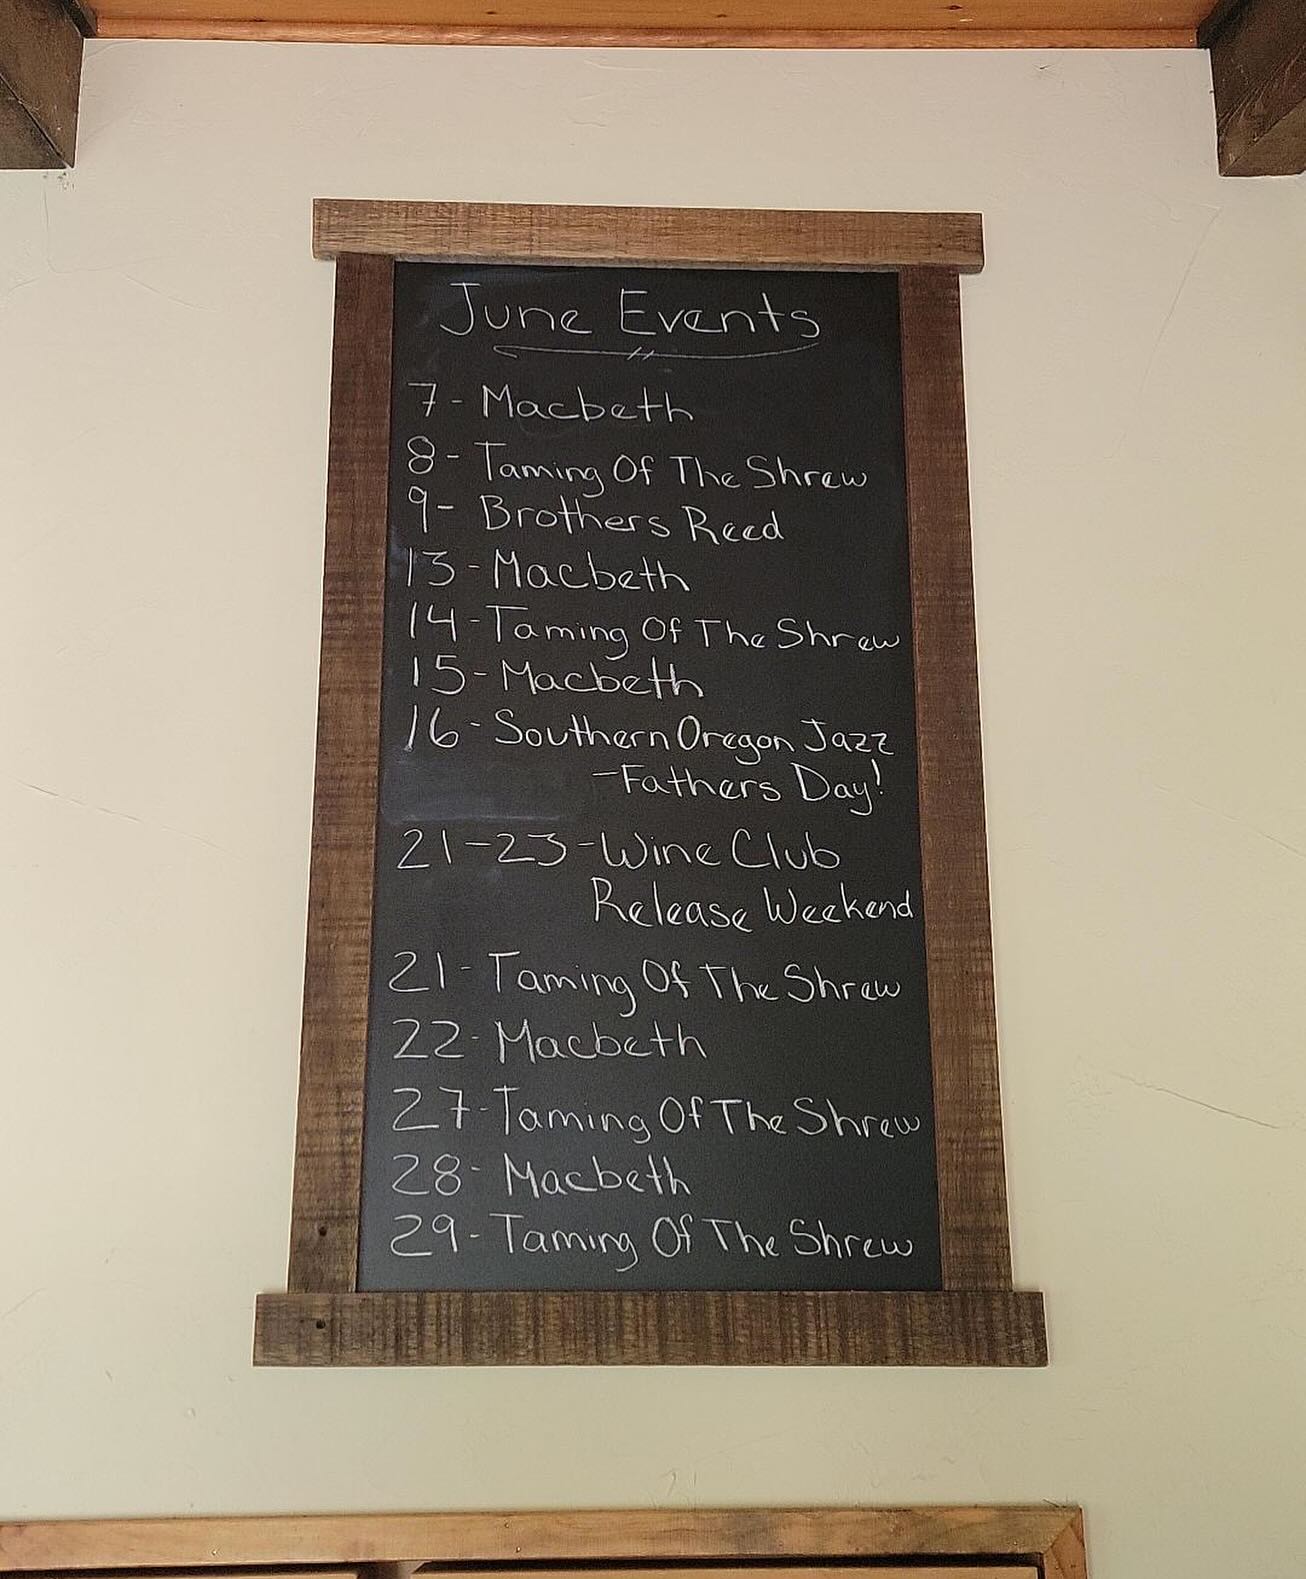 June Events
7 - Macbeth
8 - Taming Of The Shrew
9 - Brothers Reed
13 - Macbeth
14 - Taming Of The Shrew
15 - Macbeth
16 - Southern Oregon Jazz
- Fathers Day!
21-23 - Wine Club
Release Weekend
21 - Taming Of The Shrew
22 - Macbeth
27 - Taming Of The Shrew
28 - Macbeth
29 - Taming Of The Shrew